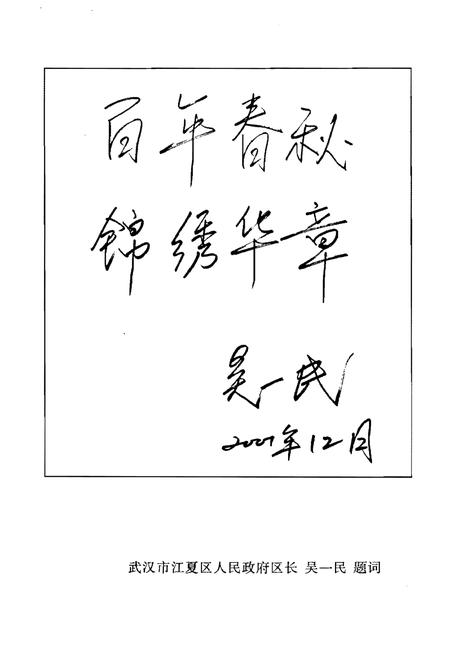 百年春秋
锦绣华章
吴一民
2001年12月
武汉市江夏区人民政府区长 吴一民 题词